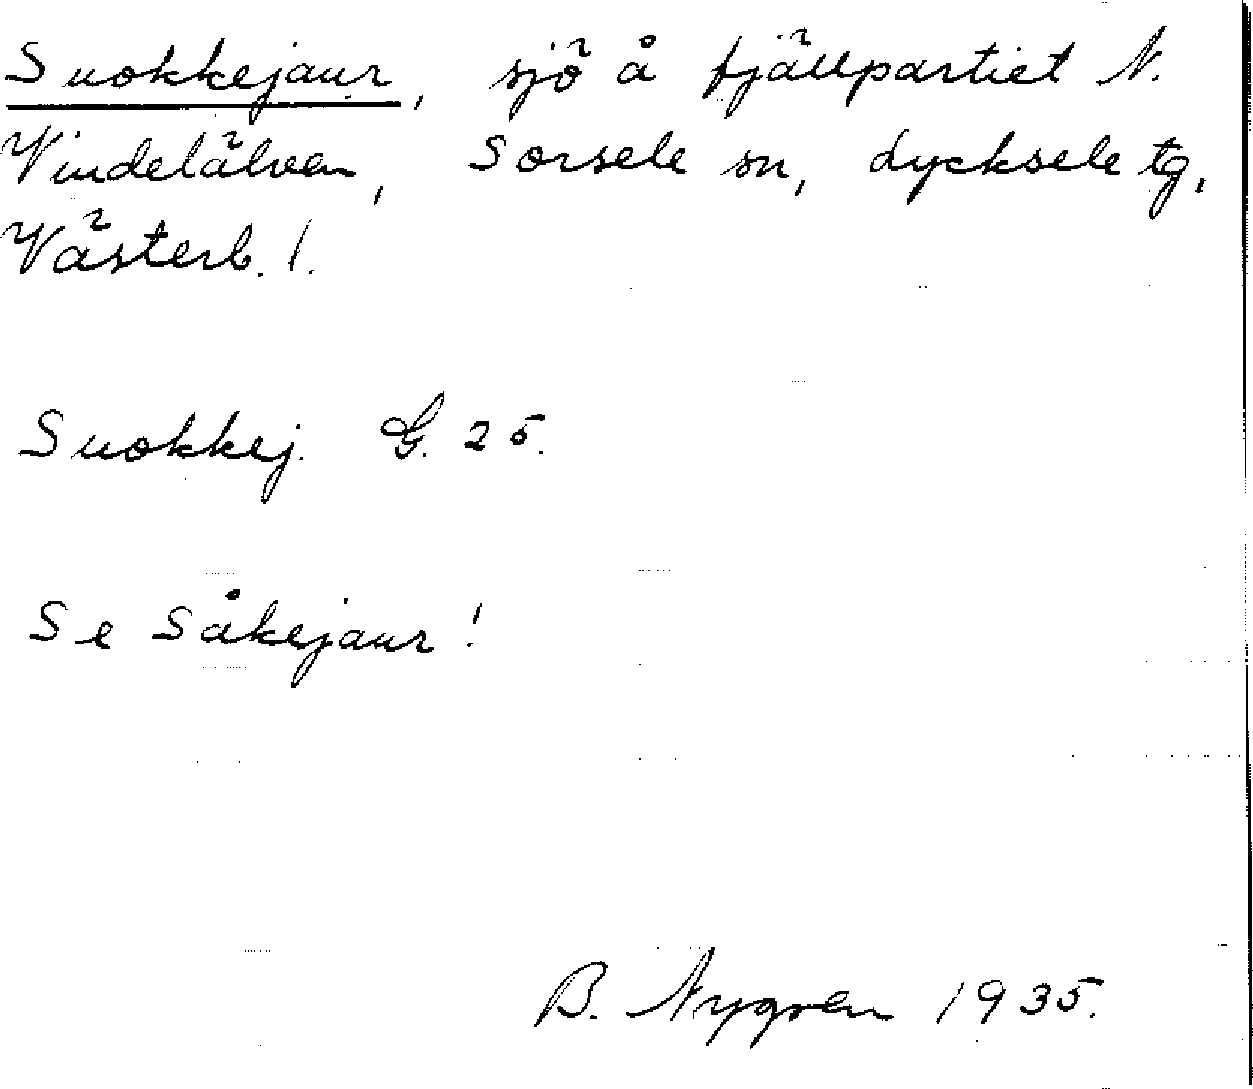 Suokkejaur, sjö å fjällpartiet N.
Vindelälven, Sorsele sn, Lycksele tg,
Västerb. l.
Suokkej. G. 25.
Se Såkejaur!
B. Nygren 1935.